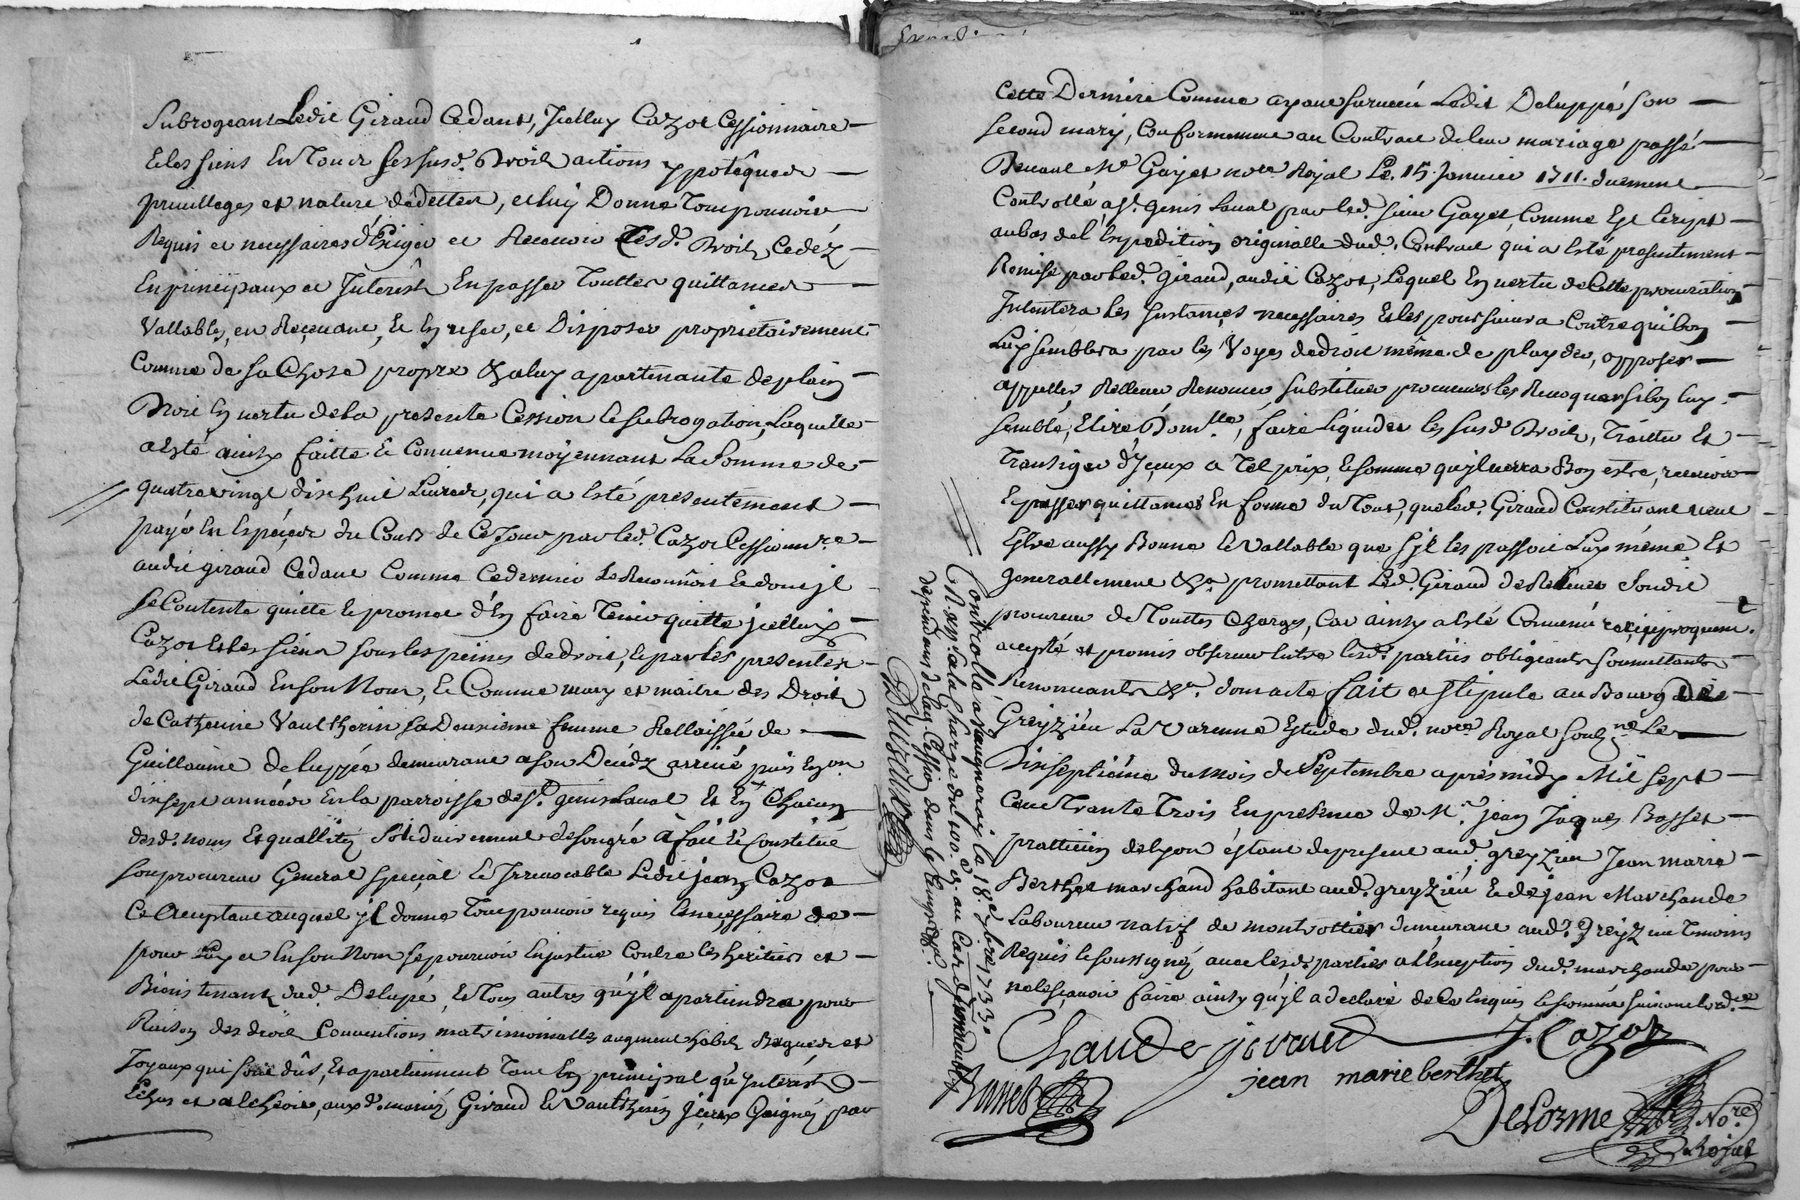 Subrogeant Ledit Giraud Cedant, Jcelluy Cazot Cessionnaire
Et les siens En Tous ses susd. Droits actions yppotêques
privilleges et nature de dettes, et luy Donne Tout pouvoir
Requis et necessaires d'Exiger et Recevoir Lesd. Droits Cedéz
En principaux et Jnterêts En passer Touttes quittances
Vallables, en Recevant, Et En user, et Disposer proprietairement
Comme de sa Chose propre & a luy apartenante de plain
Droit En vertu de la presente Cession Et subrogation, Laquelle
a Esté ainsy faitte Et Convenue moyennant La Somme de
quatre vingt dix huit Livres, qui a Esté presentement
payé En Especes du Cours de Ce Jour par led. Cazot Cessionn.re
audit giraud Cedant Comme Ce dernier Le Reconnoit Et dont jl
se Contente quitte Et promet d'En faire Tenir quitte jcelluy
Cazot Et les siens sous les peines de droit, Et par les presentes
Ledit Giraud En son Nom, Et Comme mary et maitre des Droits
de Catherine Vaultherin sa Deuxieme femme Rellaissée de
Guillaume deluppée demeurant a son Décèdz arrivé puis Environ
dixsept années En la parroisse de S.t genis Laval Et En Chacun
desd. noms Et quallités Solidairement de son gré a fait Et Constitué
son procureur General special Et Jrrevocable Ledit jean Cazot
Ce Acceptant auquel jl donne Tout pouvoir requis Et necessaire de
pour Luy et En son Nom se pourvoir En justice Contre les heritiers et
Biens tenants dud. Delupé, Et Tous autres qu'jl apartiendra pour
Raison des droits Conventions matrimonialles augment habits Bagues et
Joyaux qui sont dûs, Et apartiennent Tant En principal qu'Jnterêts
Echus et a Echeoir, aux d. mariés Giraud Et Vaultherin Jceux Gaignés par
Cette Derniere Comme ayant survecu Ledit Deluppé son
second mary, Conformement au Contract de leur mariage passé
Devant M.e Gayet no.re Royal Le 15. Janvier 1711. duement
Controllé, a S.t genis Laval par led. sieur Gayet, Comme Est Ecript
au bas de l'Expedition originalle dud. Contract qui a Esté presentement
Remise par led. Giraud, audit Cazot, Lequel En vertu de Cette procuration
Jntentera les Jnstances necessaires Et les poursuivra Contre qui bon
Luy semblera par les Voyes de droit même de playder, opposer
appeller, Rellever Renoncer, substituer procureurs les Revoquer si bon luy
semble, Elire Domi.lle, faire liquider les susd. Droits, Traitter Et
Transiger d'Jceux a Tel prix, Et somme qu'jl verra Bon estre, recevoir
Et passer quittances En forme du Tout, que led. Giraud Constituant veut
Estre aussy Bonne Et Vallable que s'jl les passoit Luy même Et
generallement &.a promettant Led. Giraud de Relever Sondit
procureur de Touttes Charges, Car ainsy a Esté Convenu reciproquem.t
accepté et promis observer Entre lesd. parties obligeants soumettants
Renonceants &.a dont acte fait et stipulé au Bourg de
Greyzieu La Varenne Estude dud. no.re Royal soub.né Le
Dixseptieme du mois de Septembre aprés midy Mil sept
Cent Trante Trois En presence de M.r jean Jaques Basset
pratticien de lyon étant de present aud. greyzieu Jean marie
Berthet marchand habitant aud. greyzieu Et de jean Marchande
Laboureur natif de montrottier demeurant aud. Greyzieu Temoins
Requis Et soussignéz avec lesd. parties a l'Exception dud. marchande pour
ne le sçavoir faire ainsy qu'jl a declaré de Ce Enquis Et sommé suivant l'ord.ce
Chaude giraud J. Cazot
Basset jean marie berthet
Delorme No.re
Royal
Controllé a Vaugneray la 18.e 7bre 1733.